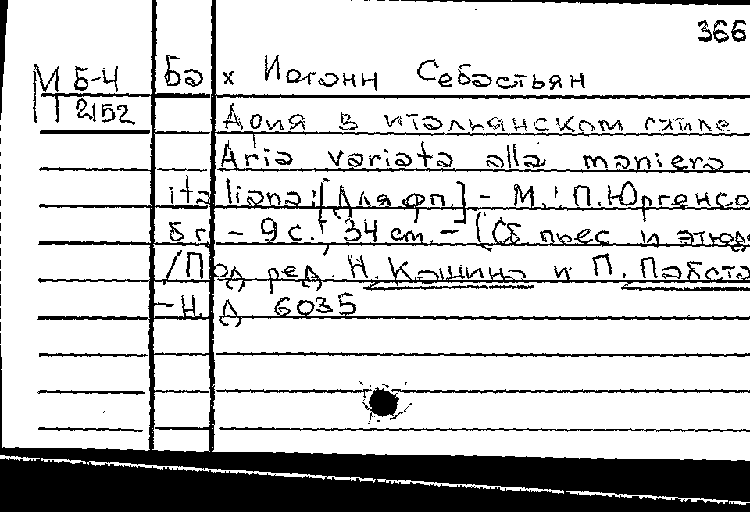 366
М Б-4 Бах Иоганн Себастьян
П 2152
Ария в итальянском стиле
Aria variata alla maniera
italiana: [Для фп.] - М.: П. Юргенсо
б.г. - 9 с.; 34 см. - (Сб. пьес и этюдо
/Под ред. Н. Кашина и П. Пабста
- Н. Д. 6035